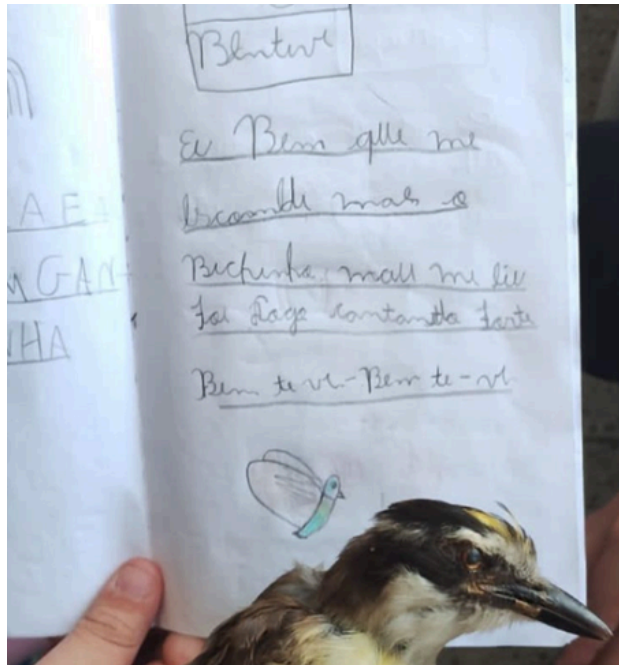 Bentevi
Eu Bem que me
esconde mas o
Bichinho mall me liu
foi logo cantando forte
Bem te vi-Bem te-vi
AE
GAN
HA